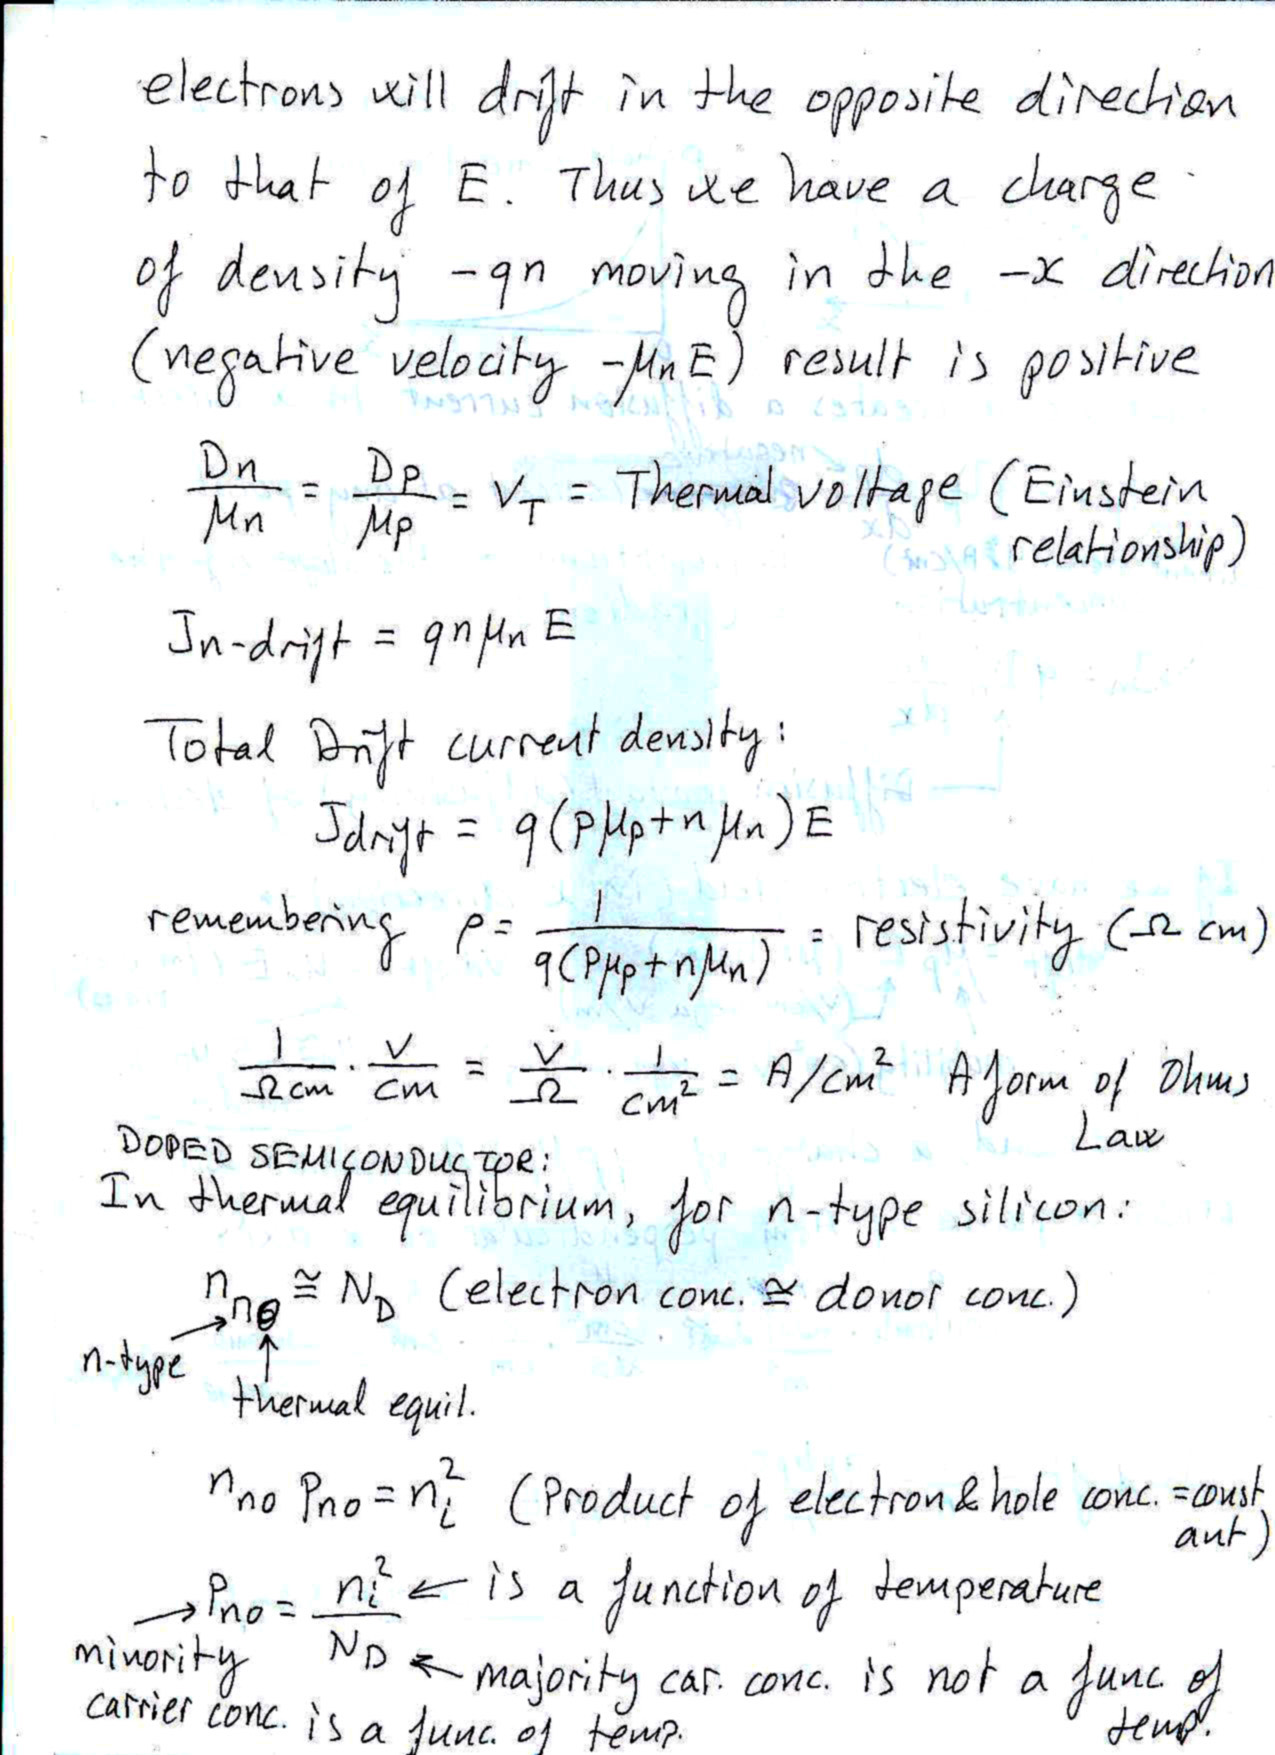 electrons will drift in the opposite direction
to that of E. Thus we have a charge
of density -qn moving in the -x direction
(negative velocity -μn E) result is positive
Dn/μn = Dp/μp = VT = Thermal voltage (Einstein
relationship)
Jn-drift = qnμn E
Total Drift current density:
Jdrift = q(pμp+nμn)E
remembering ρ = 1/q(pμp+nμn) = resistivity (Ω cm)
1/Ωcm · V/cm = V/Ω · 1/cm² = A/cm² A form of Ohms
Law
DOPED SEMICONDUCTOR:
In thermal equilibrium, for n-type silicon:
nn0 ≅ ND (electron conc. ≅ donor conc.)
n-type
thermal equil.
nno pno = ni² (Product of electron & hole conc. = const
ant)
→ Pno = ni²/ND ← is a function of temperature
minority
← majority car. conc. is not a func. of
temp.
carrier conc. is a func. of temp.